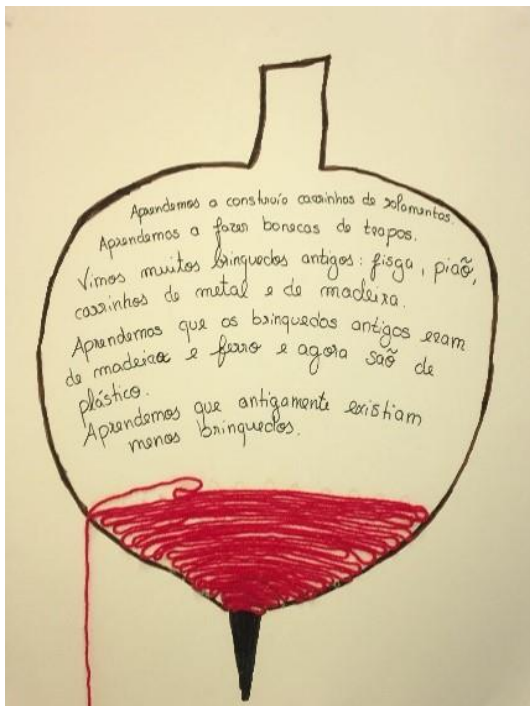 Aprendemos a construir carrinhos de rolamentos.
Aprendemos a fazer bonecas de trapos.
Vimos muitos brinquedos antigos: fisga, pião,
carrinhos de metal e de madeira.
Aprendemos que os brinquedos antigos eram
de madeira e ferro e agora são de
plástico.
Aprendemos que antigamente existiam
menos brinquedos.